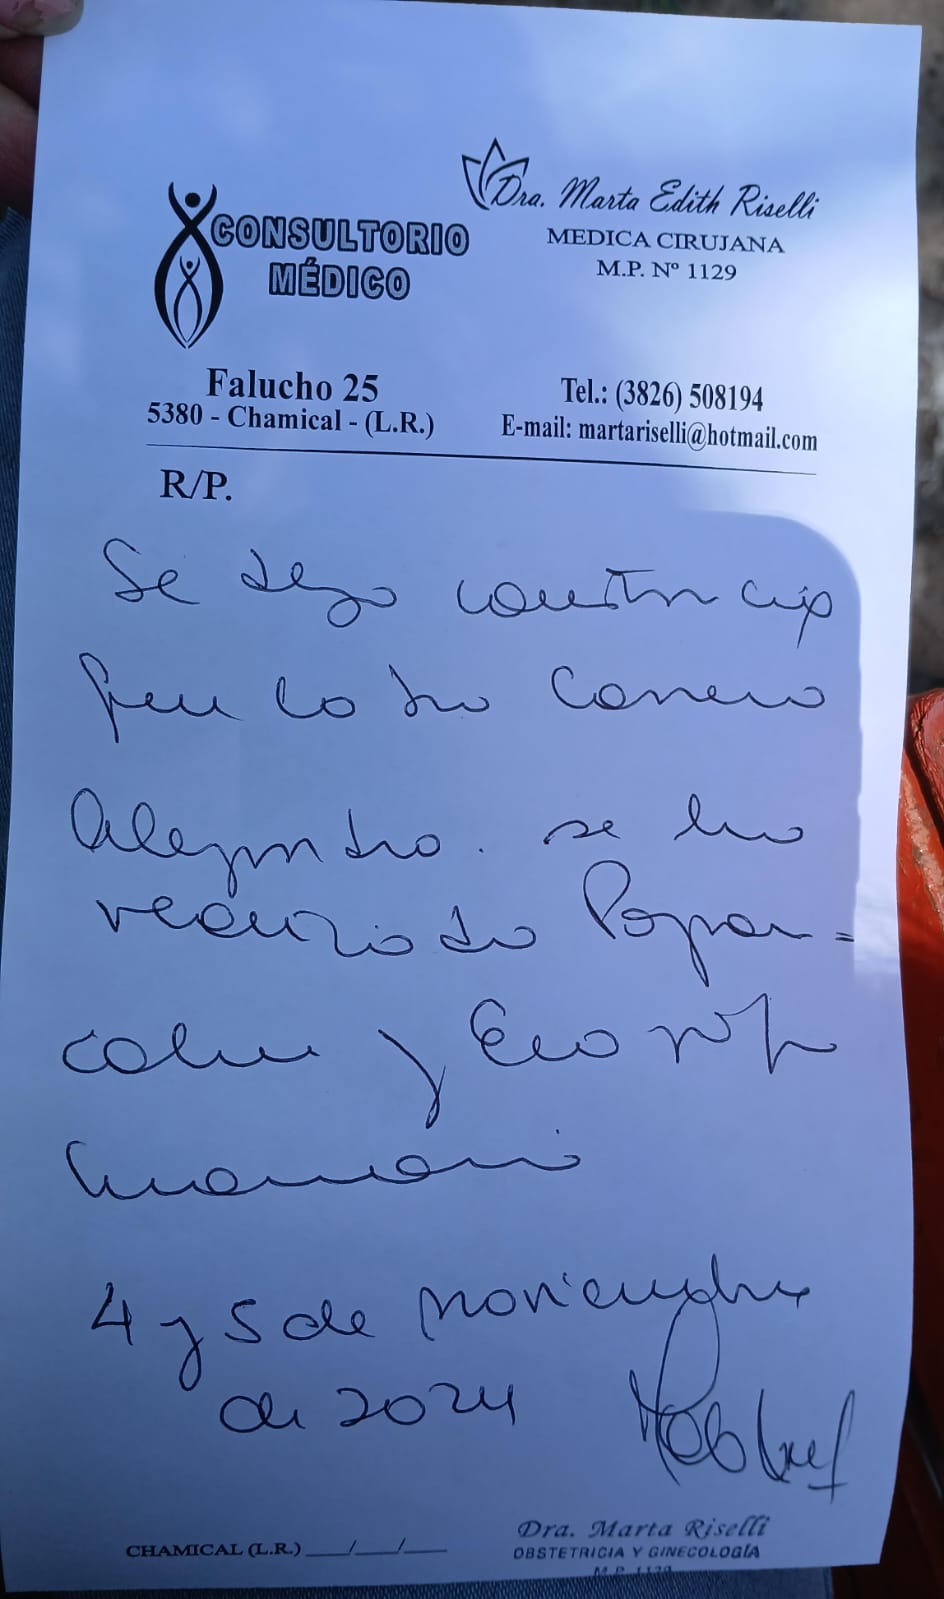 Dra. Marta Edith Riselli
CONSULTORIO
MÉDICO
MEDICA CIRUJANA
M.P. Nº 1129
Falucho 25
5380 - Chamical - (L.R.)
Tel.: (3826) 508194
E-mail: martariselli@hotmail.com
R/P.
Se deja constancia
que la Sra
Alejandra. se ha
realizado Papa=
colau y Eco
mamari
4 y 5 de noviembre
de 2024
CHAMICAL (L.R.) ___/___/___
Dra. Marta Riselli
OBSTETRICIA Y GINECOLOGÍA
M.P. 1129